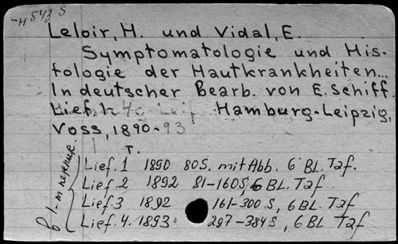 -H 543 S
Leloir, H. und Vidal, E.
Symptomatologie und His-
tologie der Hautkrankheiten...
In deutscher Bearb. von E. Schiff.
Lief. 1- Hamburg-Leipzig,
Voss, 1890-93
T.
Lief. 1 1890 80S. mit Abb. 6 BL. Taf.
Lief. 2 1892 81-160S, 6 BL. Taf.
Lief. 3 1892 161-300 S, 6 BL. Taf
Lief. 4. 1893 297-384S, 6 BL. Taf